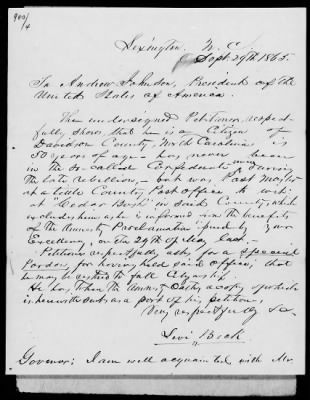 Lexington, N. C.
Sept. 29th 1865.
To Andrew Johnson, President of the
United States of America.
The undersigned Petitioner, respect-
fully shows that he is a Citizen of
Davidson County, North Carolina is
50 years of age - has never been
in the so called Confederate army during
the late rebellion - but was Post Master
at a little Country Post office to wit:
at "Cedar Bush" in said County which
excludes him as he is informed from the benefits
of the Amnesty Proclamation issued by your
Excellency, on the 29th of May last.
Petitioner respectfully asks for a special
Pardon for having held said office; that
he may be restored to full Citizenship.
He has taken the Amnesty Oath, a copy of which
is herewith sent as a part of his petition,
Very respectfully &c.
Levi Beck
Governor; I am well acquainted with Mr